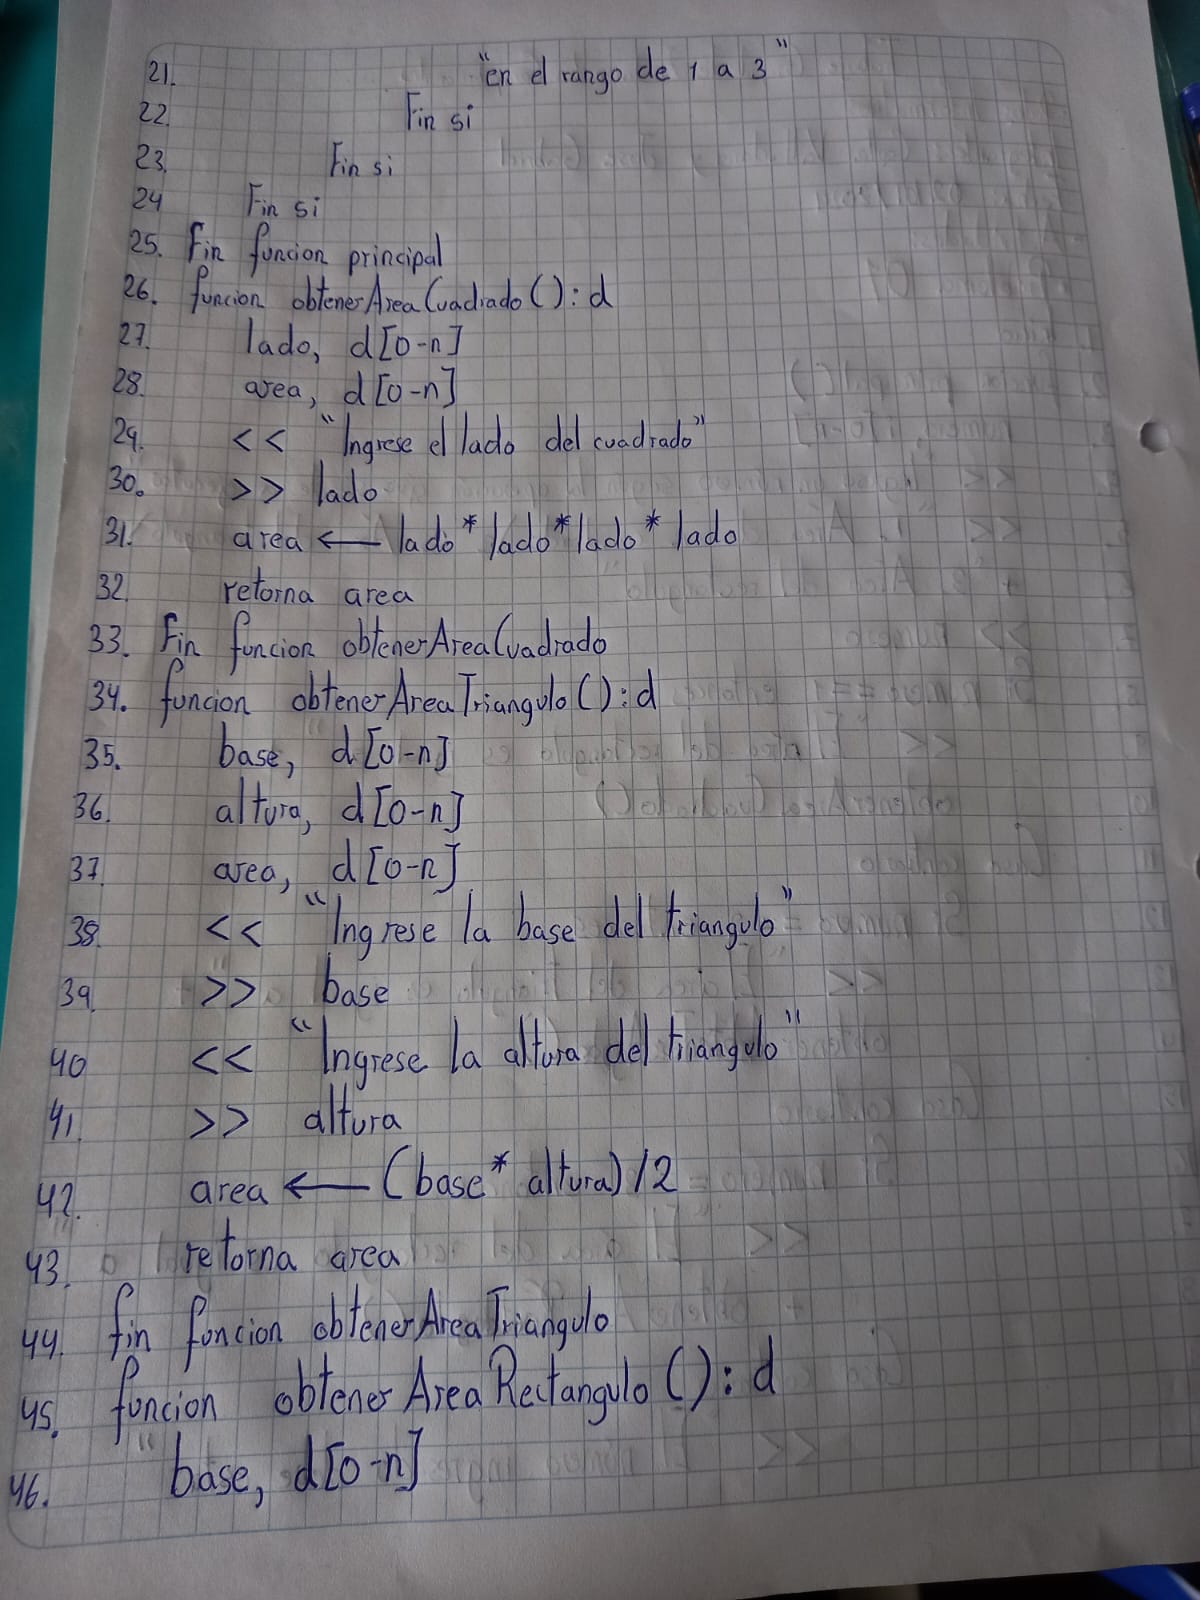 21. "en el rango de 1 a 3"
22. Fin si
23. Fin si
24 Fin si
25. Fin funcion principal
26. funcion obtenerAreaCuadrado():d
27. lado, d[0-n]
28. area, d[0-n]
29. << "Ingrese el lado del cuadrado"
30. >> lado
31. area ← lado*lado*lado*lado
32. retorna area
33. Fin funcion obtenerAreaCuadrado
34. funcion obtenerAreaTriangulo():d
35. base, d[0-n]
36. altura, d[0-n]
37. area, d[0-n]
38. << "Ingrese la base del triangulo"
39. >> base
40 << "Ingrese la altura del triangulo"
41. >> altura
42. area ← (base* altura)/2
43. retorna area
44. fin funcion obtenerAreaTriangulo
45. funcion obtenerAreaRectangulo():d
46. base, d[0-n]